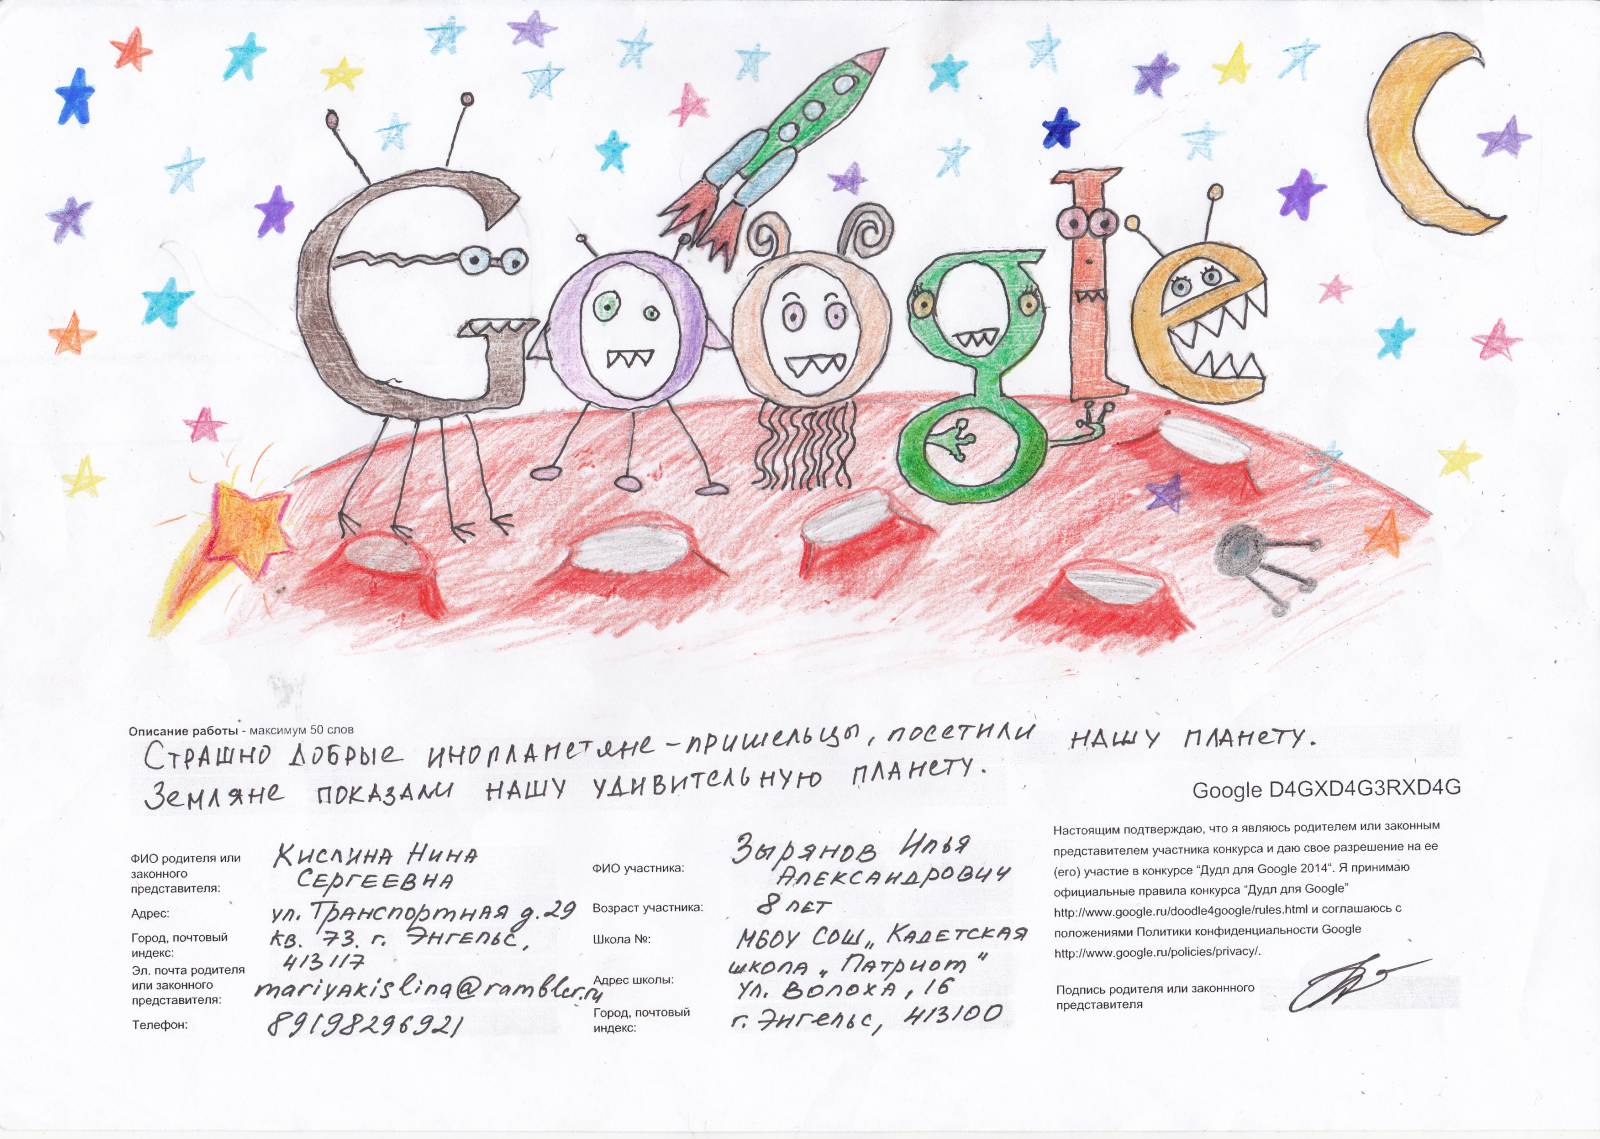 Google
Описание работы - максимум 50 слов
Страшно добрые инопланетяне-пришельцы, посетили нашу планету.
Земляне показали нашу удивительную планету.
Google D4GXD4G3RXD4G
ФИО родителя или
законного
представителя:
Кислина Нина
Сергеевна
Адрес:
ул. Транспортная д. 29
Город, почтовый
индекс:
кв. 73. г. Энгельс,
413117
Эл. почта родителя
или законного
представителя:
mariyakislina@rambler.ru
Телефон:
89198296921
ФИО участника:
Зырянов Илья
Александрович
Возраст участника:
8 лет
Школа №:
МБОУ СОШ „Кадетская
школа „Патриот"
Адрес школы:
ул. Волоха, 16
Город, почтовый
индекс:
г. Энгельс, 413100
Настоящим подтверждаю, что я являюсь родителем или законным
представителем участника конкурса и даю свое разрешение на ее
(его) участие в конкурсе "Дудл для Google 2014". Я принимаю
официальные правила конкурса "Дудл для Google"
http://www.google.ru/doodle4google/rules.html и соглашаюсь с
положениями Политики конфиденциальности Google
http://www.google.ru/policies/privacy/.
Подпись родителя или законнного
представителя